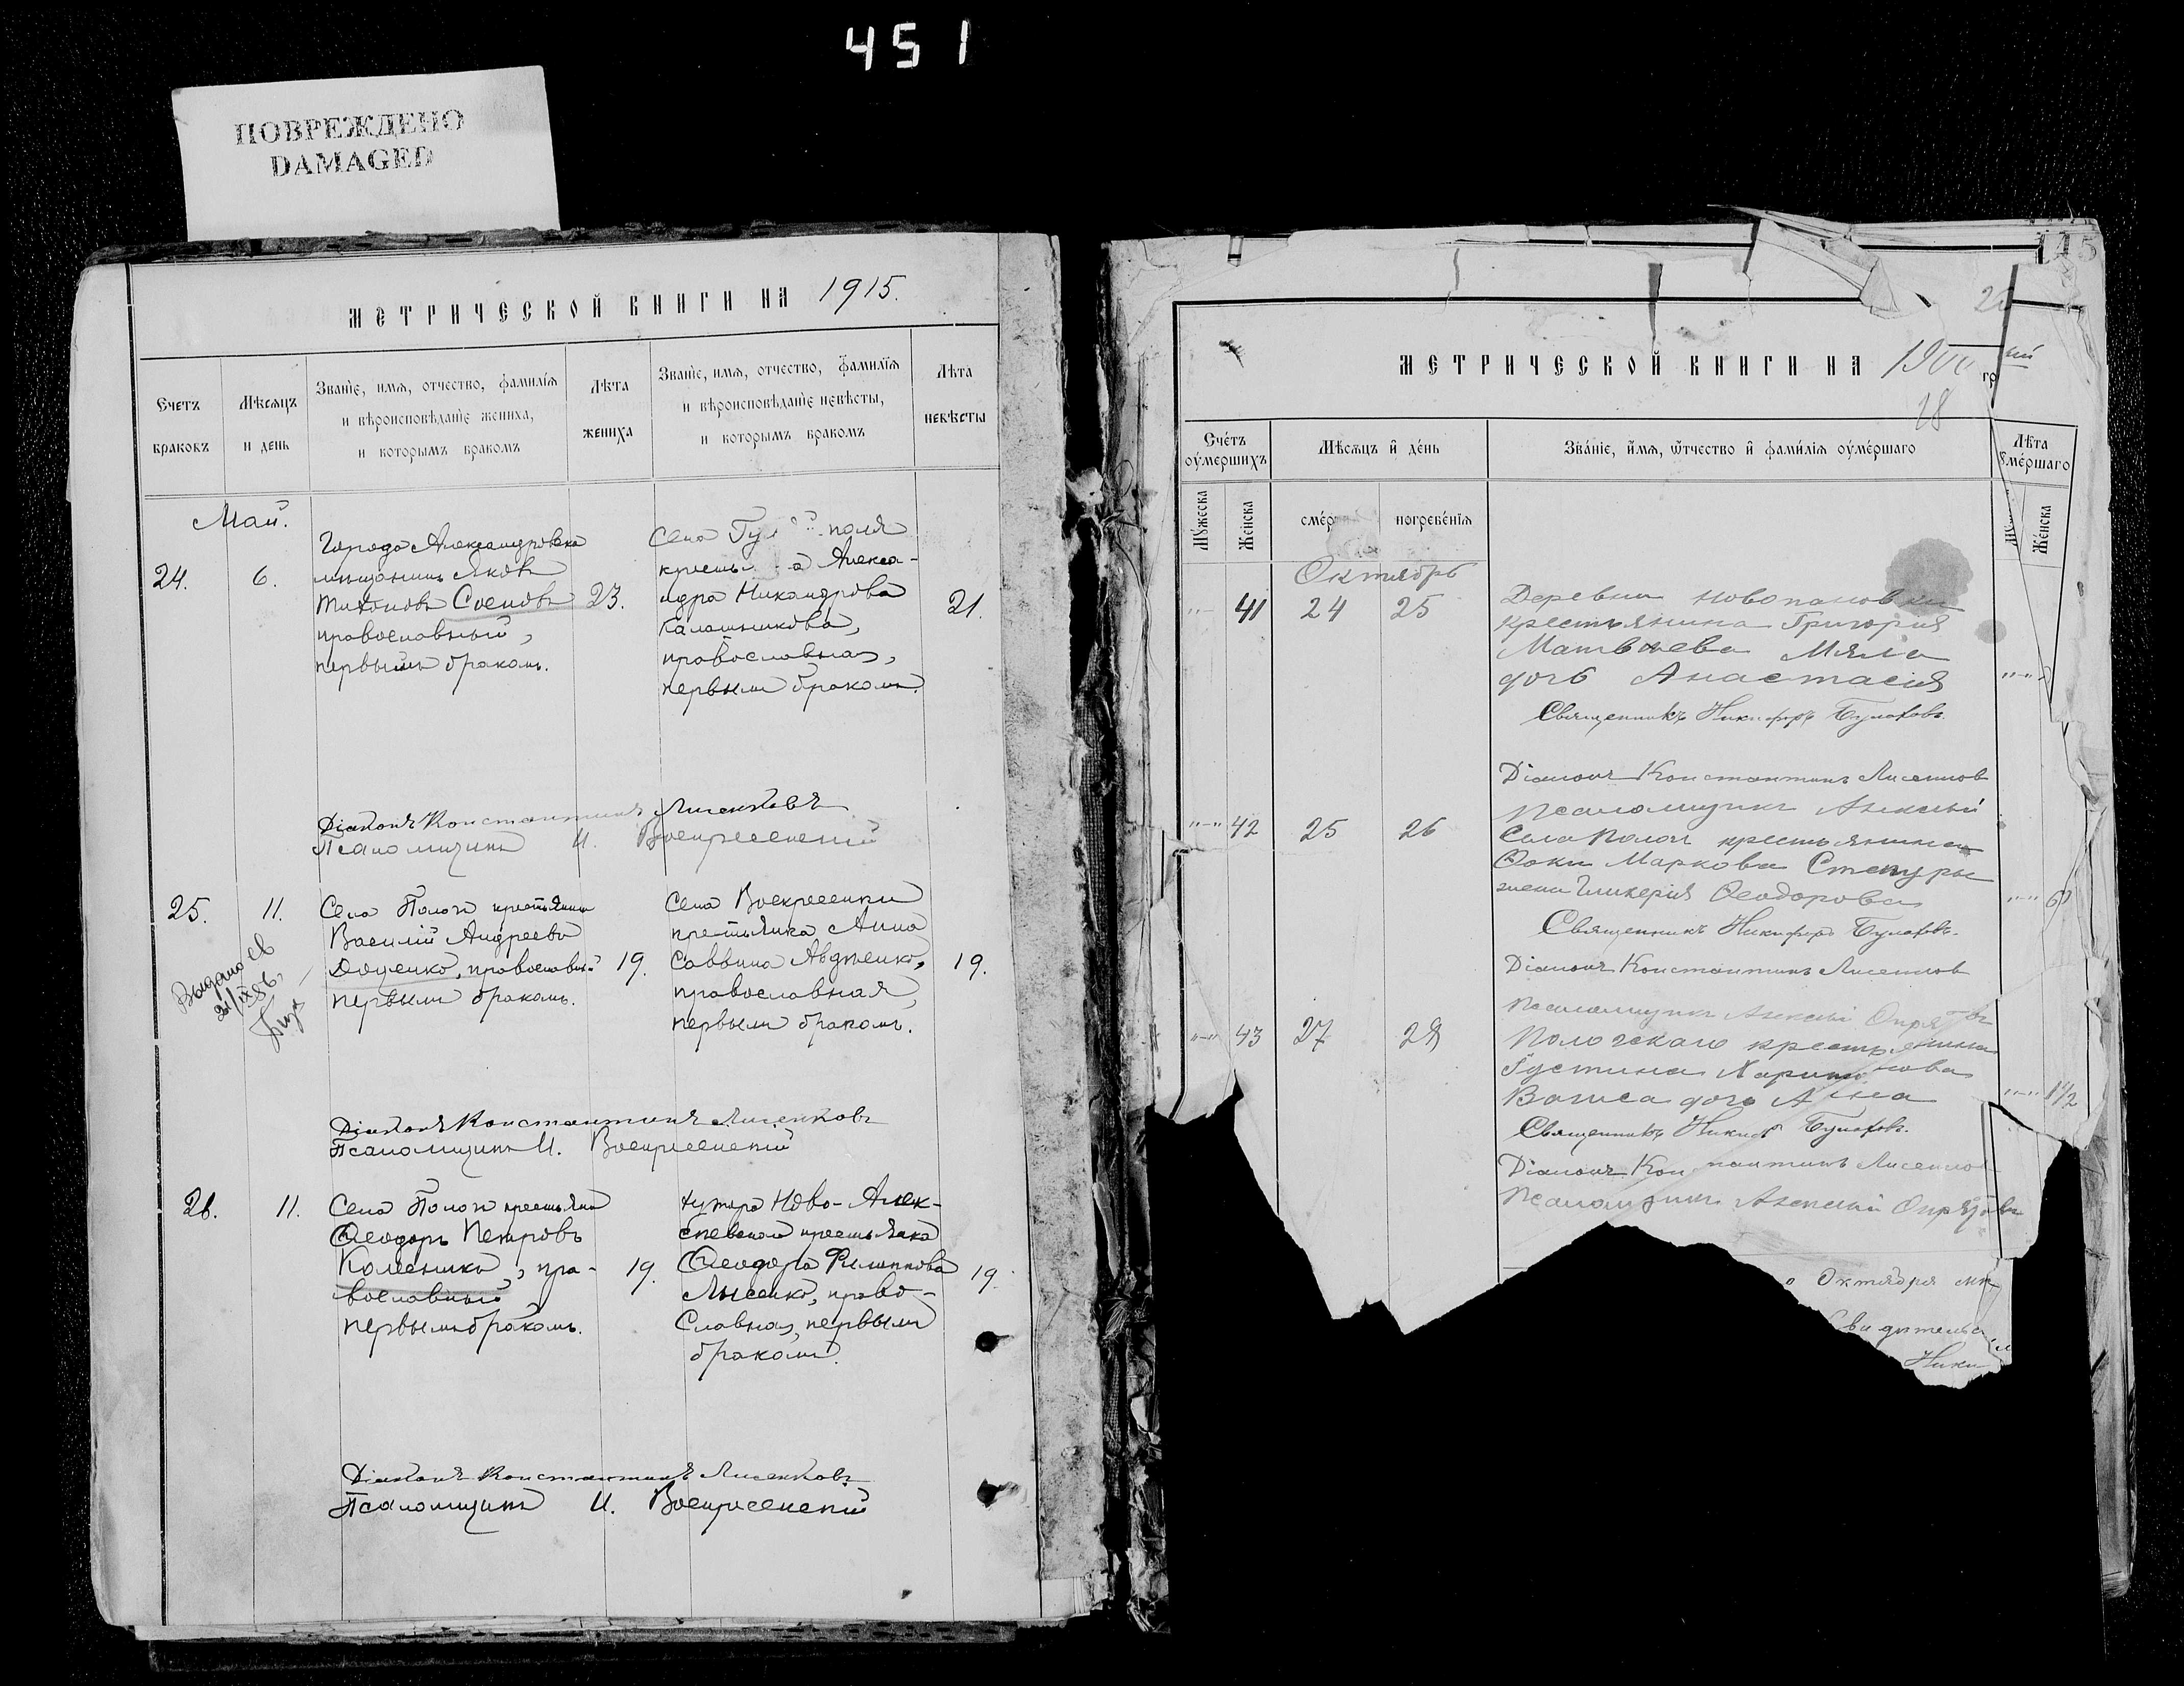 451
ПОВРЕЖДЕНО
DAMAGED
МЕТРИЧЕСКОЙ КНИГИ НА 1915.
Счетъ браковъ
Мѣсяцъ и день
Званіе, имя, отчество, фамилія
и вѣроисповѣданіе жениха,
и которымъ бракомъ
Лѣта жениха
Званіе, имя, отчество, фамилія
и вѣроисповѣданіе невѣсты,
и которымъ бракомъ
Лѣта невѣсты
Май.
24.
6.
Города Александровска
мѣщанинъ Яковъ
Тихоновъ Сосновъ
православный,
первымъ бракомъ.
23.
Села Гул поля
кресть а Алекса-
ндра Никандрова
Калашникова,
православная,
первымъ бракомъ.
21.
Діаконъ Константинъ Лисенковъ
Псаломщикъ И. Воскресенскій
25.
11.
Села Пологи крестьянинъ
Василій Андреевъ
Доценко, православный
первымъ бракомъ.
19.
Села Воскресенки
крестьянка Анна
Саввина Авдѣенко,
православная,
первымъ бракомъ.
19.
Выдано св
Діаконъ Константинъ Лисенковъ
Псаломщикъ И. Воскресенскій
26.
11.
Села Пологи крестьянинъ
Ѳеодоръ Петровъ
Колесникъ, пра-
вославный
первымъ бракомъ.
19.
Хутора Ново-Алек-
сѣевскаго крестьянка
Ѳеодора Филиппова
Лысенко, право-
славная, первымъ
бракомъ.
19.
Діаконъ Константинъ Лисенковъ
Псаломщикъ И. Воскресенскій
115
МЕТРИЧЕСКОЙ КНИГИ НА 1900 ый
гр
28
Счéтъ оу҆мéршихъ
Мѣ́сяцъ и҆ дéнь
Звáніе, и҆́мя, ѻ҆́тчество и҆ фами́лія оу҆мéршаго
Лѣ́та оу҆мéршаго
Мꙋ́жеска
Жéнска
смéр
погребéнїя
Жéнска
Октябрь
"-" 41 24 25
Деревни Новопановки
крестьянина Григорія
Матвѣева Мяла
дочь Анастасія
Священникъ Никифоръ Булаховъ
Діаконъ Константинъ Лисенков
Псаломщикъ Алексѣй
"-" 42 25 26
Села Пологи крестьянина
Ѳоки Маркова Ступуры
жена Гликерія Ѳеодорова
Священникъ Никифоръ Булаховъ.
Діаконъ Константинъ Лисенков
Псаломщикъ Алексѣй
"-" 43 27 28
Пологскаго крестьянина
Іустина Харитонова
дочь Анна
"-" 1 1/2
Священникъ Никиф Булаховъ.
Діаконъ Кон тантинъ Лисенков
Псаломщикъ Алексѣй
Октября мѣ
Свидѣтельс
Ники